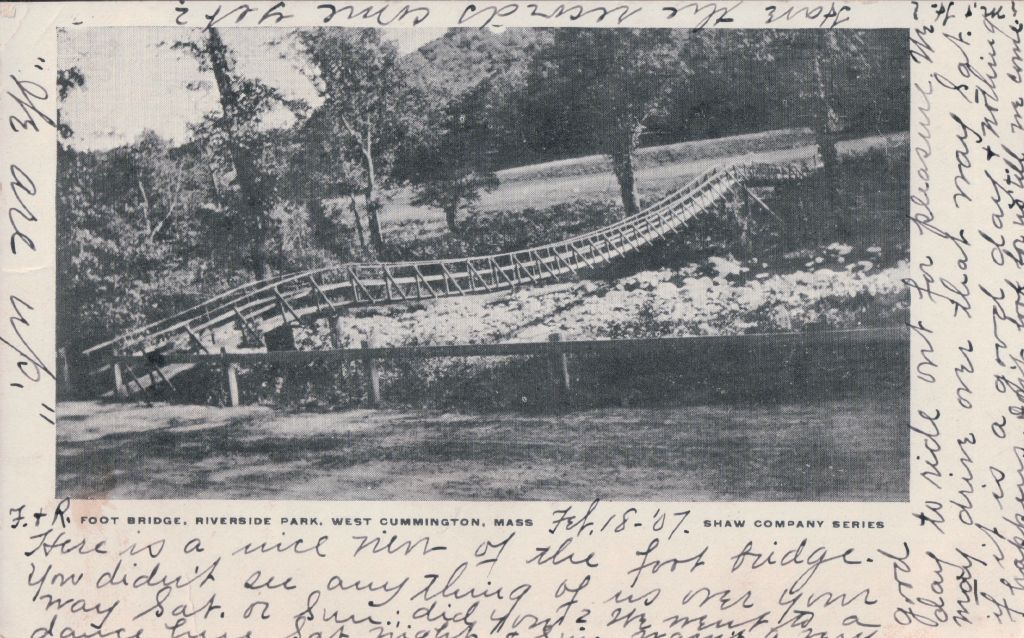 Have the records come yet?
"We are up."
F. + R. FOOT BRIDGE, RIVERSIDE PARK, WEST CUMMINGTON, MASS Feb, 18-'07. SHAW COMPANY SERIES
Here is a nice view of the foot bridge.
You didn't see any thing of us over your
way Sat. or Sun.; did you? We went to a
dance here Sat night +
good
day to ride out for pleasure. We
may drive over that way Sat.
if it is a good day + nothing
happens. Don't look for us till we come.